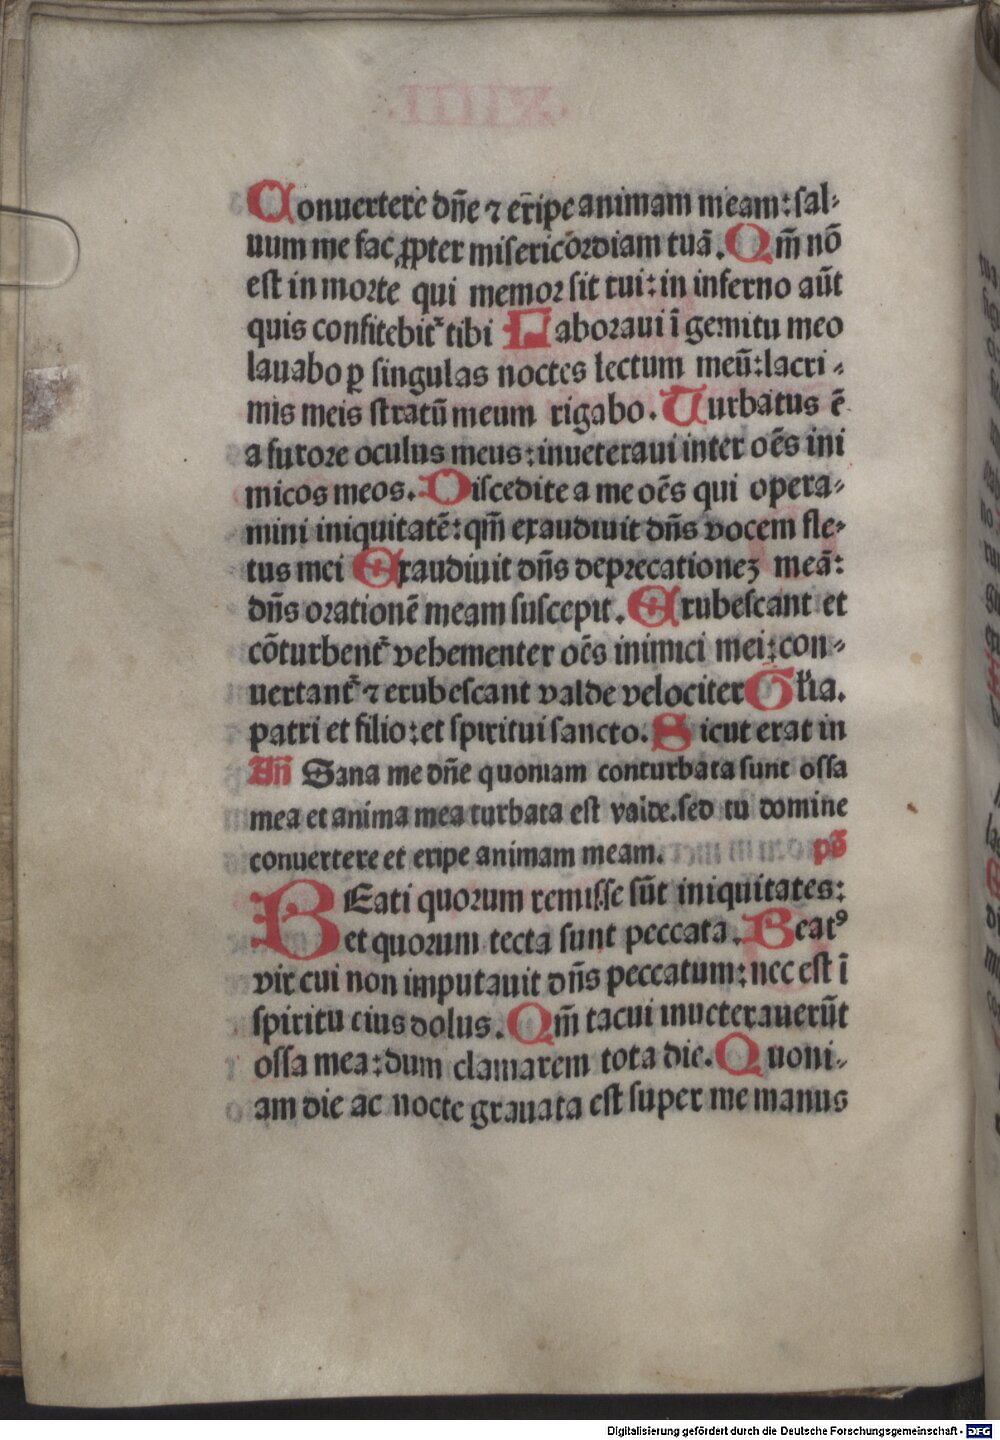 Conuertere dñe ⁊ eripe animam meam: sal⸗
uum me fac ꝓpter misericordiam tuã. Qm̃ nõ
est in morte qui memor sit tui: in inferno aũt
quis confitebit᷑ tibi Laboraui ĩ gemitu meo
lauabo ꝑ singulas noctes lectum meũ: lacri⸗
mis meis stratũ meum rigabo. Turbatus ẽ
a furore oculus meus: inueteraui inter oẽs ini
micos meos. Discedite a me oẽs qui opera⸗
mini iniquitatẽ: qm̃ exaudiuit dñs vocem fle⸗
tus mei Exaudiuit dñs deprecationeꝫ meã:
dñs orationẽ meam suscepit. Erubescant et
cõturbent᷑ vehementer oẽs inimici mei: con⸗
uertant᷑ ⁊ erubescant valde velociter Gl̃ia.
patri et filio: et spiritui sancto. Sicut erat in
Añ Sana me dñe quoniam conturbata sunt ossa
mea et anima mea turbata est valde. sed tu domine
conuertere et eripe animam meam. ps̃
BEati quorum remisse sũt iniquitates:
et quorum tecta sunt peccata. Beatꝰ
vir cui non imputauit dñs peccatum: nec est ĩ
spiritu eius dolus. Qm̃ tacui inueterauerũt
ossa mea: dum clamarem tota die. Quoni⸗
am die ac nocte grauata est super me manus
Digitalisierung gefördert durch die Deutsche Forschungsgemeinschaft - DFG